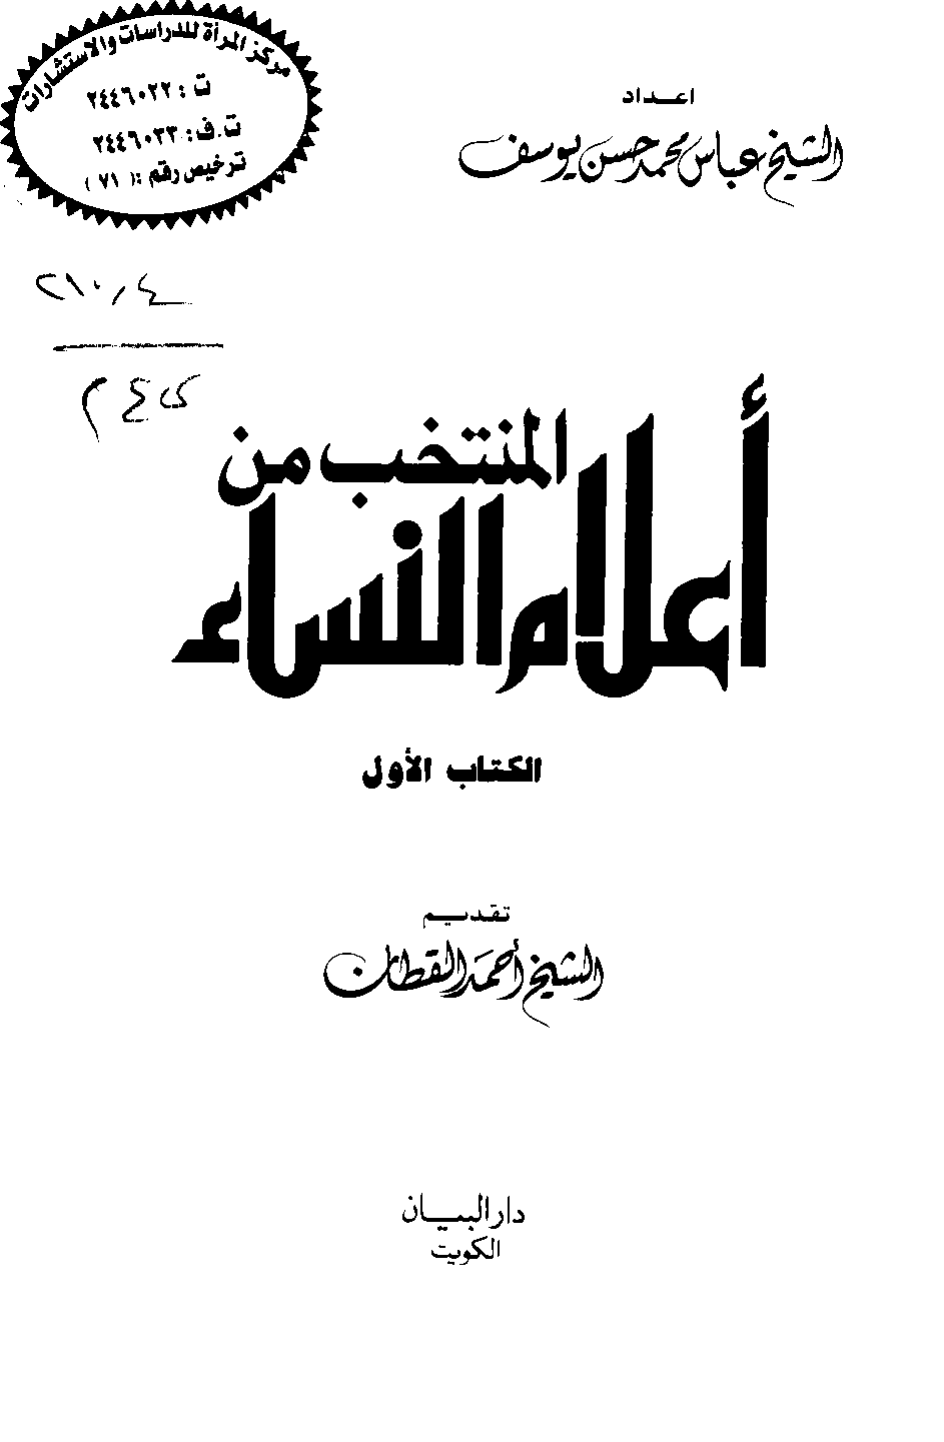 مركز المرأة للدراسات والاستشارات
ت : ٢٤٤٦٠٢٢
ت.ف: ٢٤٤٦٠٣٣
ترخيص رقم :( ٧١ )
اعداد
الشيخ عباس محمد حسن يوسف
٢١٠,٤
المنتخب من
أعلام النساء
الكتاب الأول
تقديم
الشيخ أحمد القطان
دار البيان
الكويت